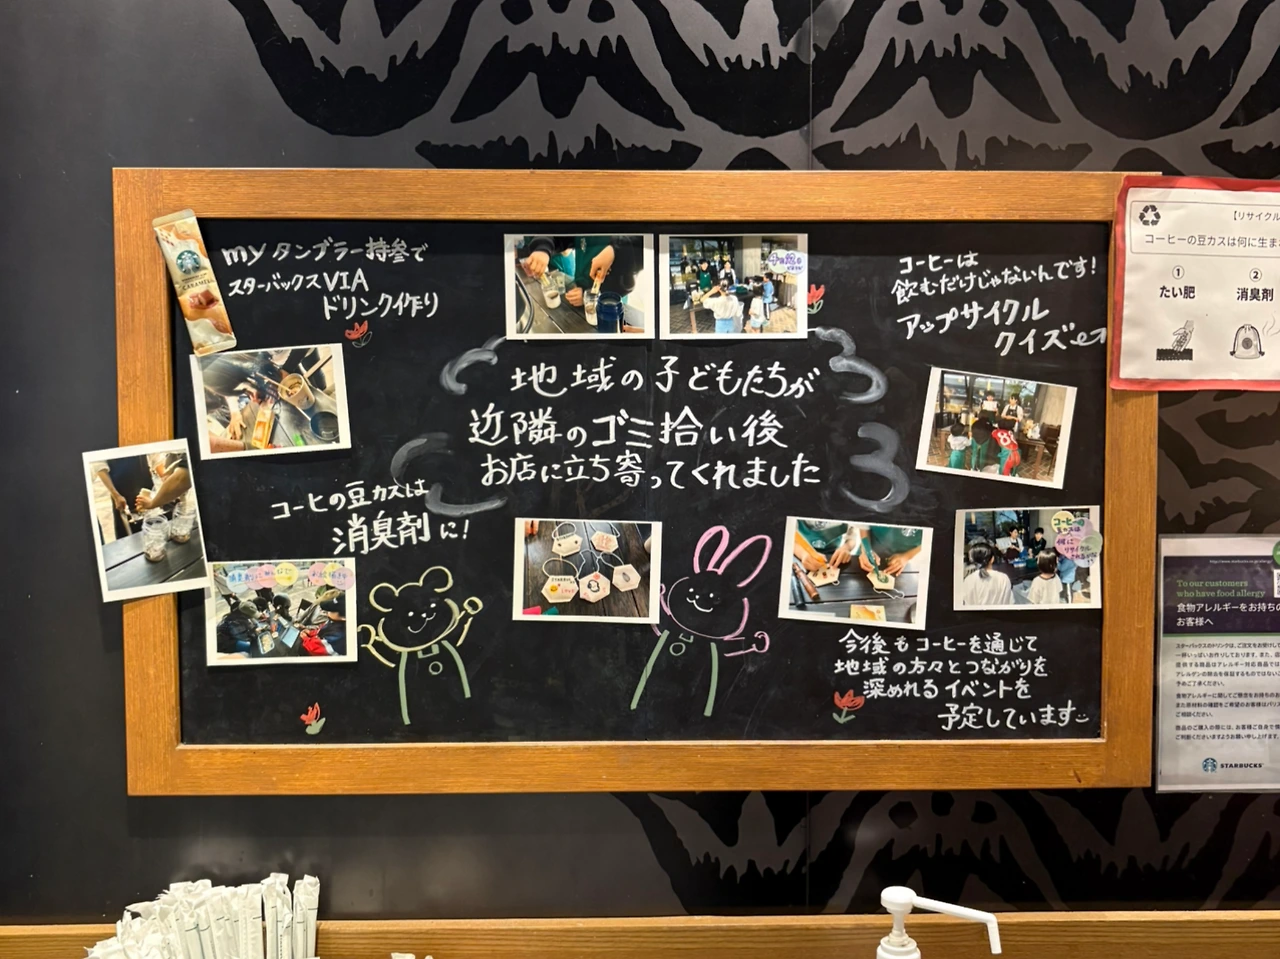 my タンブラー持参で
スターバックス VIA
ドリンク作り
コーヒーは
飲むだけじゃないんです!
アップサイクル
クイズ
地域の子どもたちが
近隣のゴミ拾い後
お店に立ち寄ってくれました
コーヒの豆カスは
消臭剤に!
今後もコーヒーを通じて
地域の方々とつながりを
深めれるイベントを
予定しています
【リサイクル
コーヒーの豆カスは何に生ま
①
たい肥
②
消臭剤
To our customers
who have food allergy
食物アレルギーをお持ちの
お客様へ
STARBUCKS